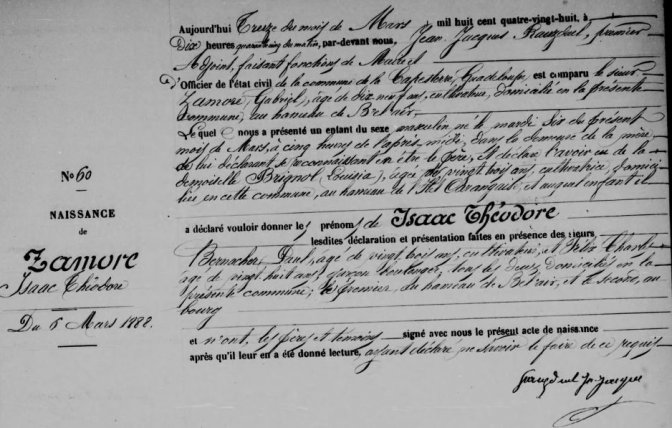 Aujourd'hui Treize du mois de Mars mil huit cent quatre-vingt-huit, à
Dix heures quarante cinq du matin, par-devant nous, Jean Jacques premier
Adjoint, faisant fonctions de Maire et
d'Officier de l'état civil de la commune de la Capesterre, Guadeloupe, est comparu le sieur
Zamore, Gabriel, âgé de dix neuf ans, cultivateur, domicilié en la présente
commune, au hameau de Bel'air.
Lequel nous a présenté un enfant du sexe masculin né le mardi six du présent
mois de Mars, à cinq heures de l'après midi, dans la demeure de la mère
de lui déclarant se reconnaissant en être le père, et déclare l'avoir eu de la
demoiselle Brignol, Louisia, âgée de vingt trois ans, cultivatrice, domici-
liée en cette commune, au hameau de l'Ilet et auquel enfant il
a déclaré vouloir donner les prénoms de Isaac Théodore
lesdites déclaration et présentation faites en présence des sieurs
Paul, âgé de vingt trois ans, cultivateur, et Félix Charles
âgé de vingt huit ans, garçon boulanger, tous les deux domiciliés en la
présente commune; le premier, au hameau de Bel'air, et le second, au
bourg
et n'ont, les père et témoins signé avec nous le présent acte de naissance
après qu'il leur en a été donné lecture, ayant déclaré ne savoir le faire de ce requis
No 60
NAISSANCE
de
Zamore
Isaac Théodore
Du 6 Mars 1888.